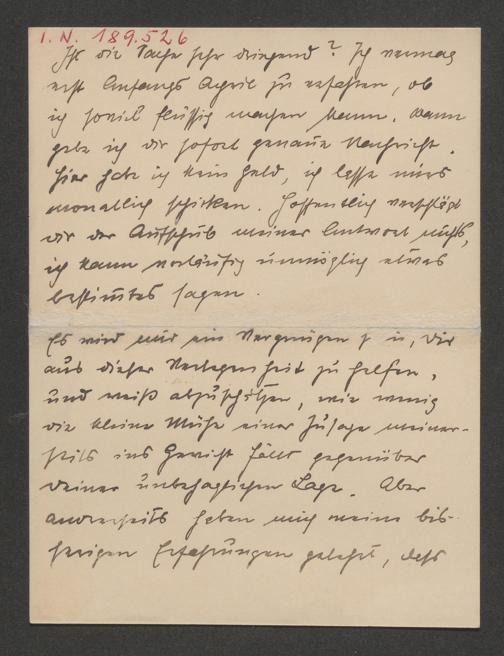 I. N. 189.526
Ist die Sache sehr dringend? Ich vermag
erst Anfangs April zu erfahren, ob
ich soviel flüssig machen kann. Dann
gebe ich dir sofort genaue Nachricht.
Hier habe ich kein Geld, ich lasse mirs
monatlich schicken. Hoffentlich verschlägt
dir der Aufschub meiner Antwort nichts,
ich kann vorläufig unmöglich etwas
bestimmtes sagen.
Es wird mir ein Vergnügen sein, dir
aus dieser Verlegenheit zu helfen,
und weiß abzuschätzen, wie wenig
die kleine Mühe einer Zusage meiner-
seits ins Gewicht fällt gegenüber
deiner unbehaglichen Lage. Aber
andrerseits haben mich meine bis-
herigen Erfahrungen gelehrt, dass